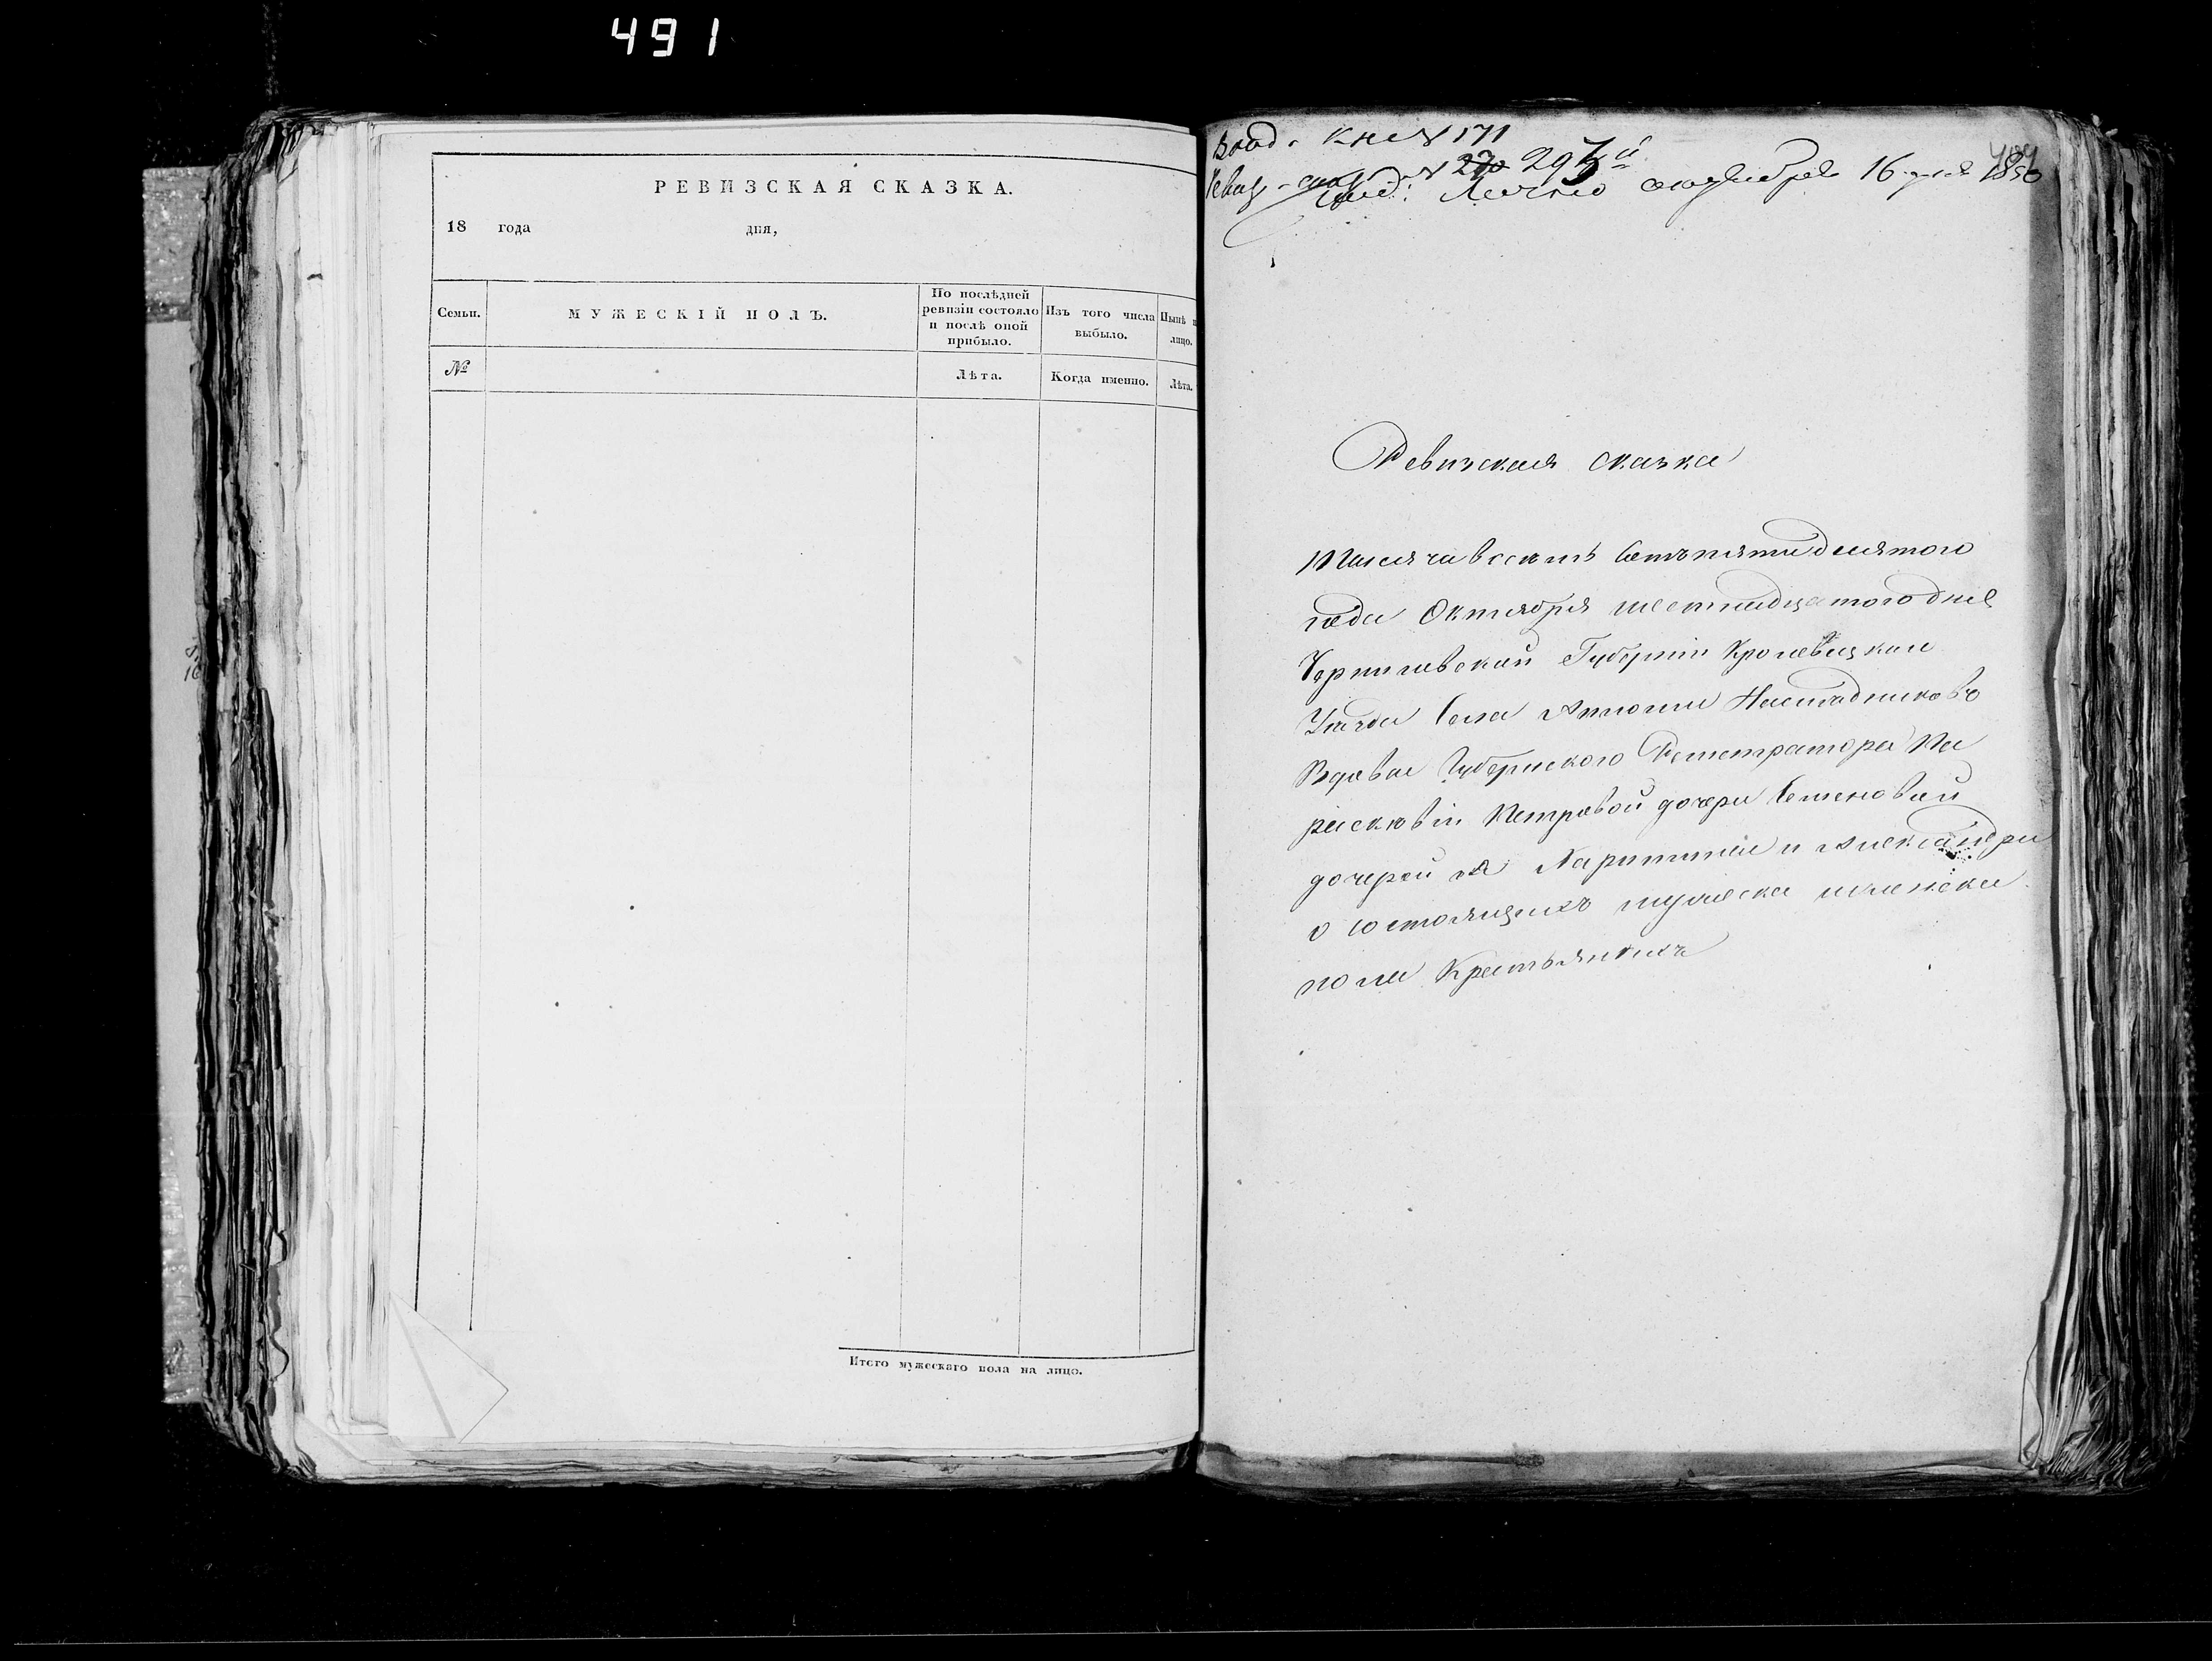 491
РЕВИЗСКАЯ СКАЗКА.
18 года дня,
Семьи.
МУЖЕСКІЙ ПОЛЪ.
По послѣдней
ревизіи состояло
и послѣ оной
прибыло.
Изъ того числа
выбыло.
Нынѣ н
лицо.
№
Лѣта.
Когда именно.
Лѣта.
Итого мужескаго пола на лицо.
кн № 171
Ревиз-
№ 270 293й
Лично октября 16 дня 1850
Ревизская сказка
Тысяча восемъ сотъ пятидесятого
года Октября шестнадцатого дня
Черниговской Губерніи Кролевецкаго
Уѣзда Села
Вдовы Губернского Регистратора Па
расковіи Петровой дочери Семеновой
дочерей ея и Александры
о состоящихъ мужеска и женска
пола Крестьянахъ